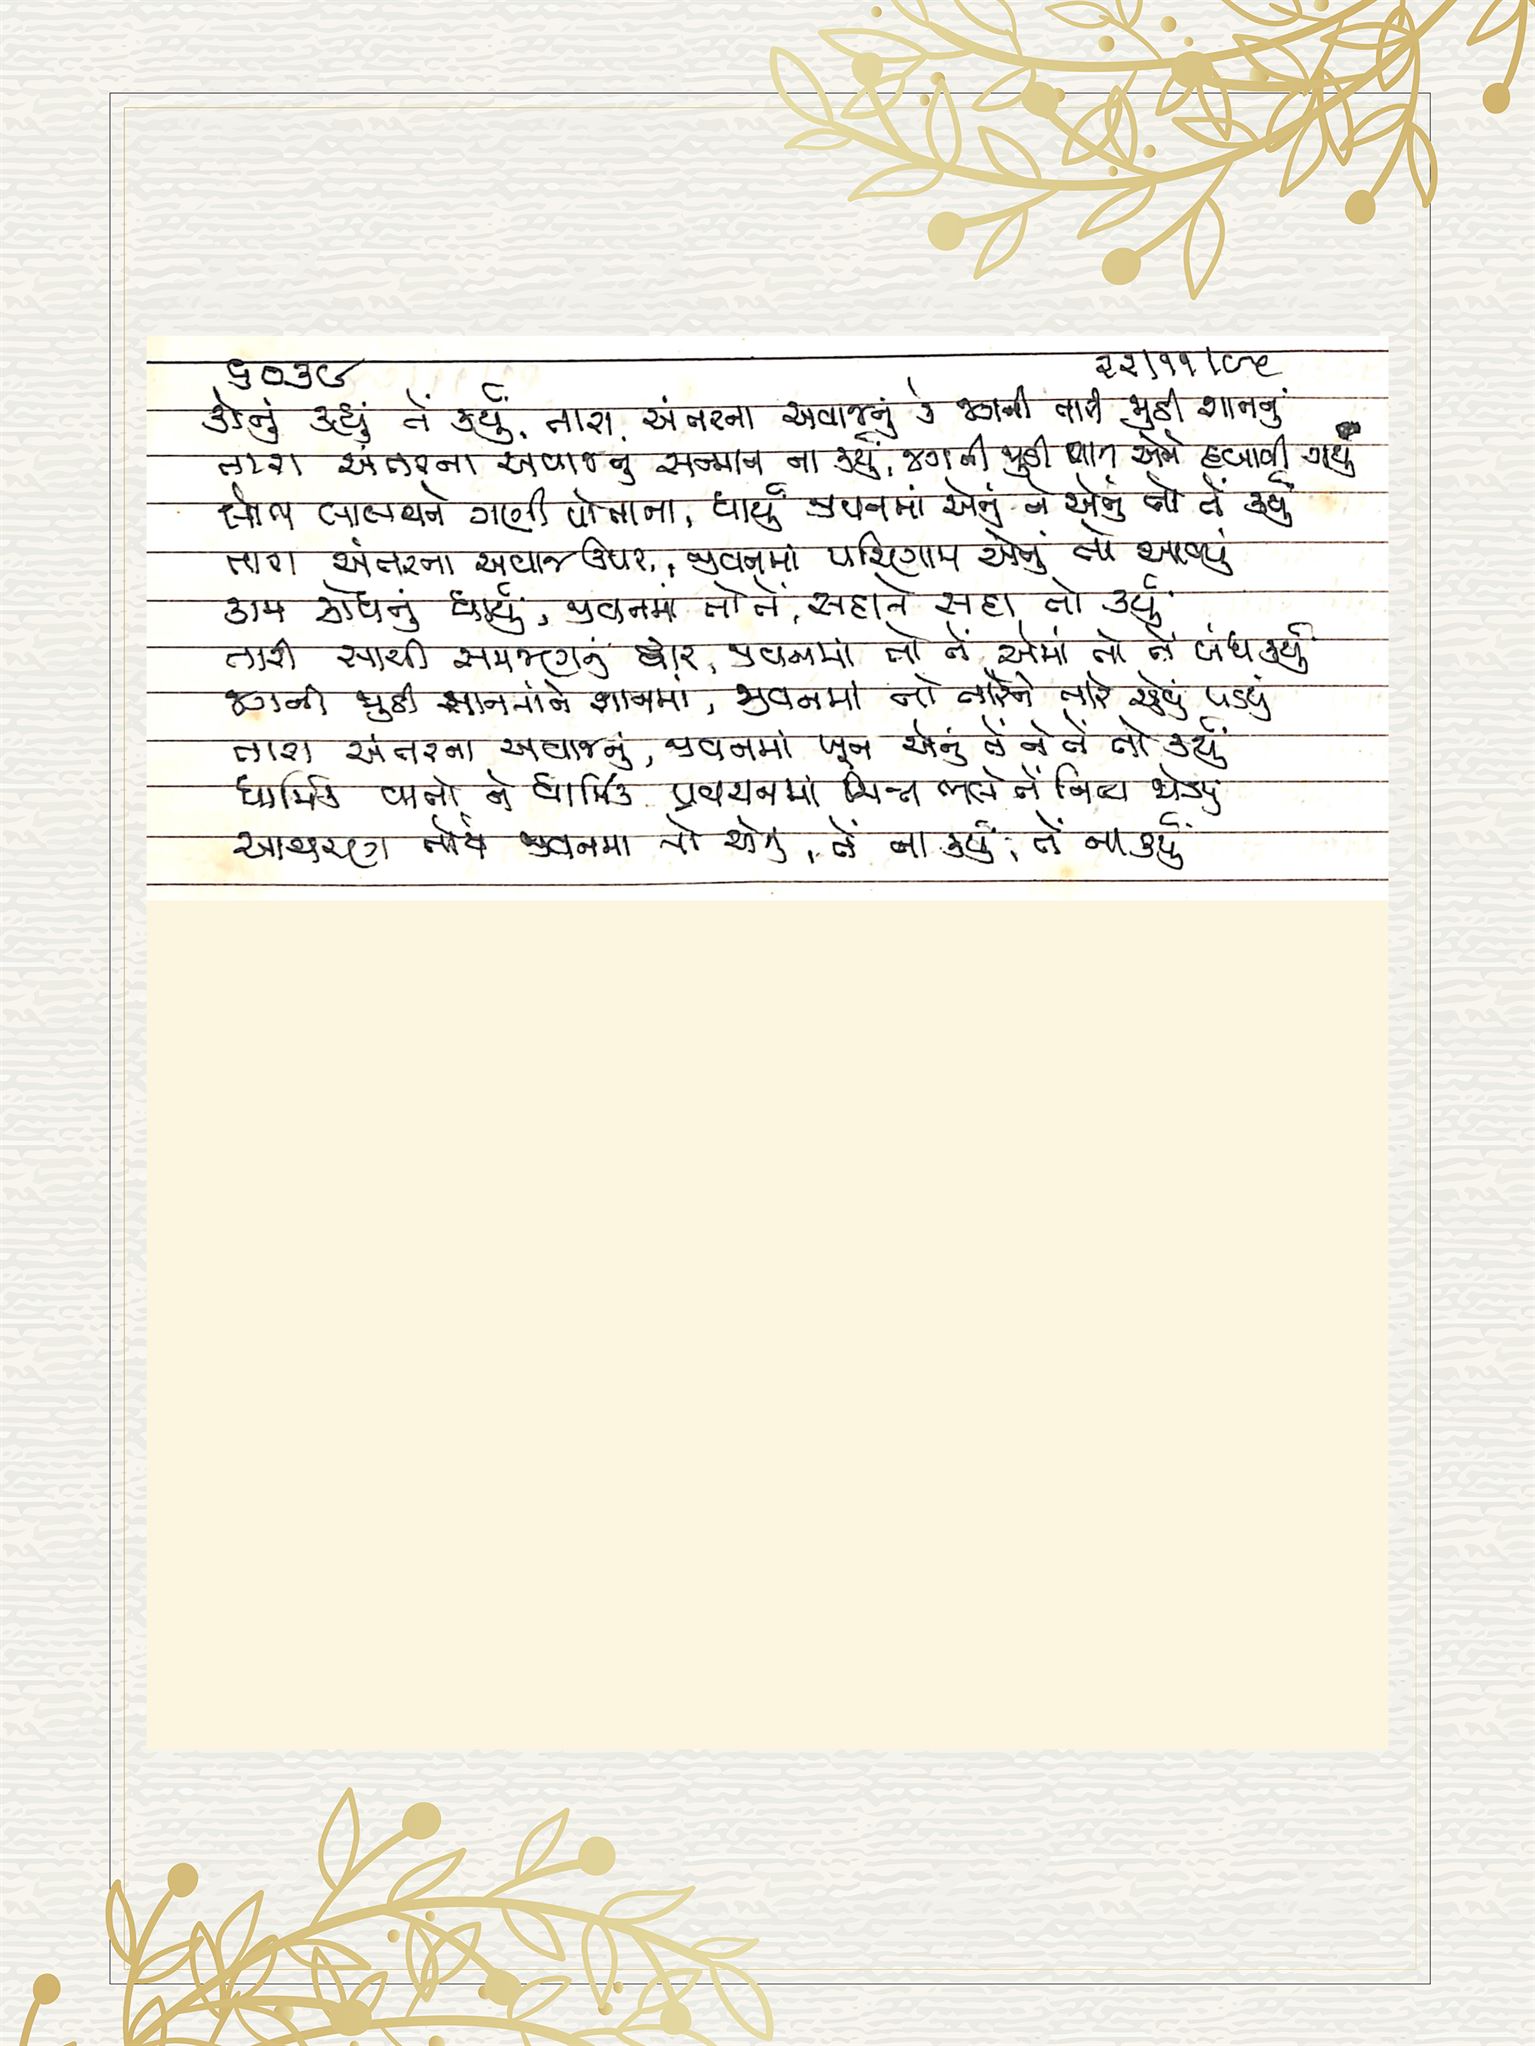 ૬૦૩૯ ૨૨/૧૧/૯૫
કોનું કહ્યું તેં કર્યું, તારા અંતરના અવાજનું કે જગની તારી જુઠી શાનનું
તારા અંતરના અવાજનું સન્માન ના કર્યું, જગની જુઠી શાન એને દબાવી ગયું
લોભ લાલચને ગણી પોતાના, ધાર્યું જીવનમાં એનું ને એનું તો તેં કર્યું
તારા અંતરના અવાજ ઉપર, જીવનમાં પરિણામ એનું તો આવ્યું
કામ ક્રોધનું ધાર્યું, જીવનમાં તો તેં, સદાને સદા તો કર્યું
તારી સાચી સમજણનું દ્વાર, જીવનમાં તો તેં એમાં તો તેં બંધ કર્યું
જગની જુઠી શાનમાંને શાનમાં, જીવનમાં તો તારેને તારે રહેવું પડયું
તારા અંતરના અવાજનું, જીવનમાં ખૂન એનું તેં ને તેં તો કર્યું
ધાર્મિક વાતો ને ધાર્મિક પ્રવચનમાં ચિત્ત ભલે તેં નિત્ય જોડયું
આચરણ તોયે જીવનમાં તો એનું, તેં ના કર્યું, તેં ના કર્યું